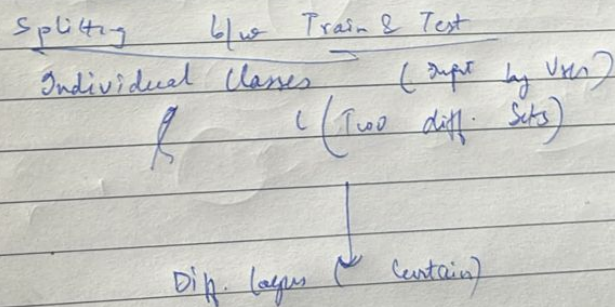 Splitting b/w Train & Test
Individual Classes (Input by User)
(Two diff. Sets)
Diff. layers (Certain)